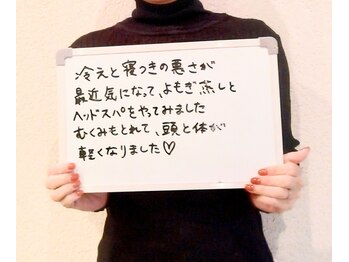 冷えと寝つきの悪さが
最近気になって、よもぎ蒸しと
ヘッドスパをやってみました
むくみもとれて、頭と体が
軽くなりました♡